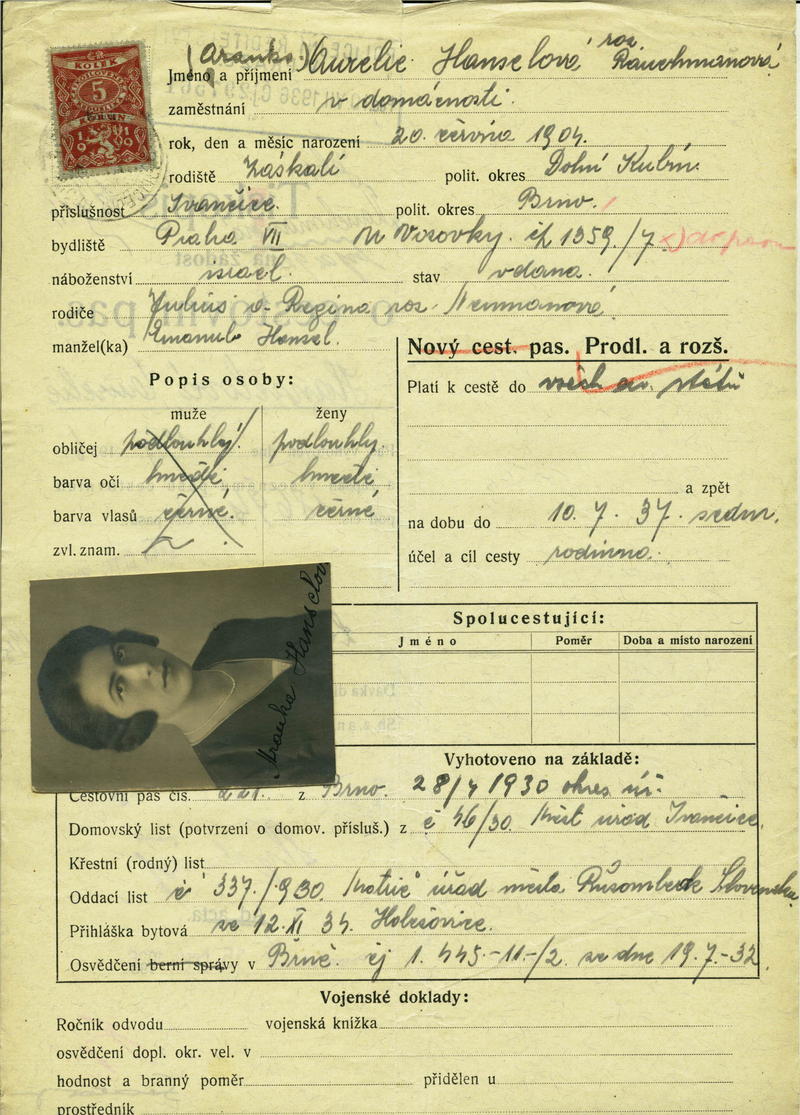 KOLEK
5
KORUN
1919
(Aranka) Aurelie Hanselová roz.
Jméno a příjmení Rauchmanová
zaměstnání v domácnosti.
rok, den a měsíc narození 20. června 1904.
rodiště Záskalí polit. okres Dolní Kubín.
příslušnost Ivančice. polit. okres Brno.
bydliště Praha VII U Vorovky. čp 1359/7
náboženství israel. stav vdana.
rodiče Julius a Regina roz. Neumanová
manžel(ka) Emanuel Hansel.
Nový cest. pas. Prodl. a rozš.
Platí k cestě do všech ev. států
a zpět
na dobu do 10. 7. 37.
účel a cíl cesty rodinno.
Popis osoby:
muže ženy
obličej podlouhlý. podlouhlý.
barva očí hnědé hnědé
barva vlasů černé. černé
zvl. znam.
Aranka Hanselov
Spolucestující:
Jméno Poměr Doba a místo narození
Vyhotoveno na základě:
Cestovní pas čís. 221. z Brno. 28/4 1930 okres. úř.
Domovský list (potvrzení o domov. přísluš.) z č 46/30 Měst úřad Ivančice.
Křestní (rodný) list
Oddací list č 337./930. Matrič úřad města Růžomberk Slovensko
Přihláška bytová ze 12. XI 34. Holešovice.
Osvědčení berní správy v Brně. čj 1. 445.-11-/2. ze dne 19.7.-32.
Vojenské doklady:
Ročník odvodu vojenská knížka
osvědčení dopl. okr. vel. v
hodnost a branný poměr přidělen u
prostředník